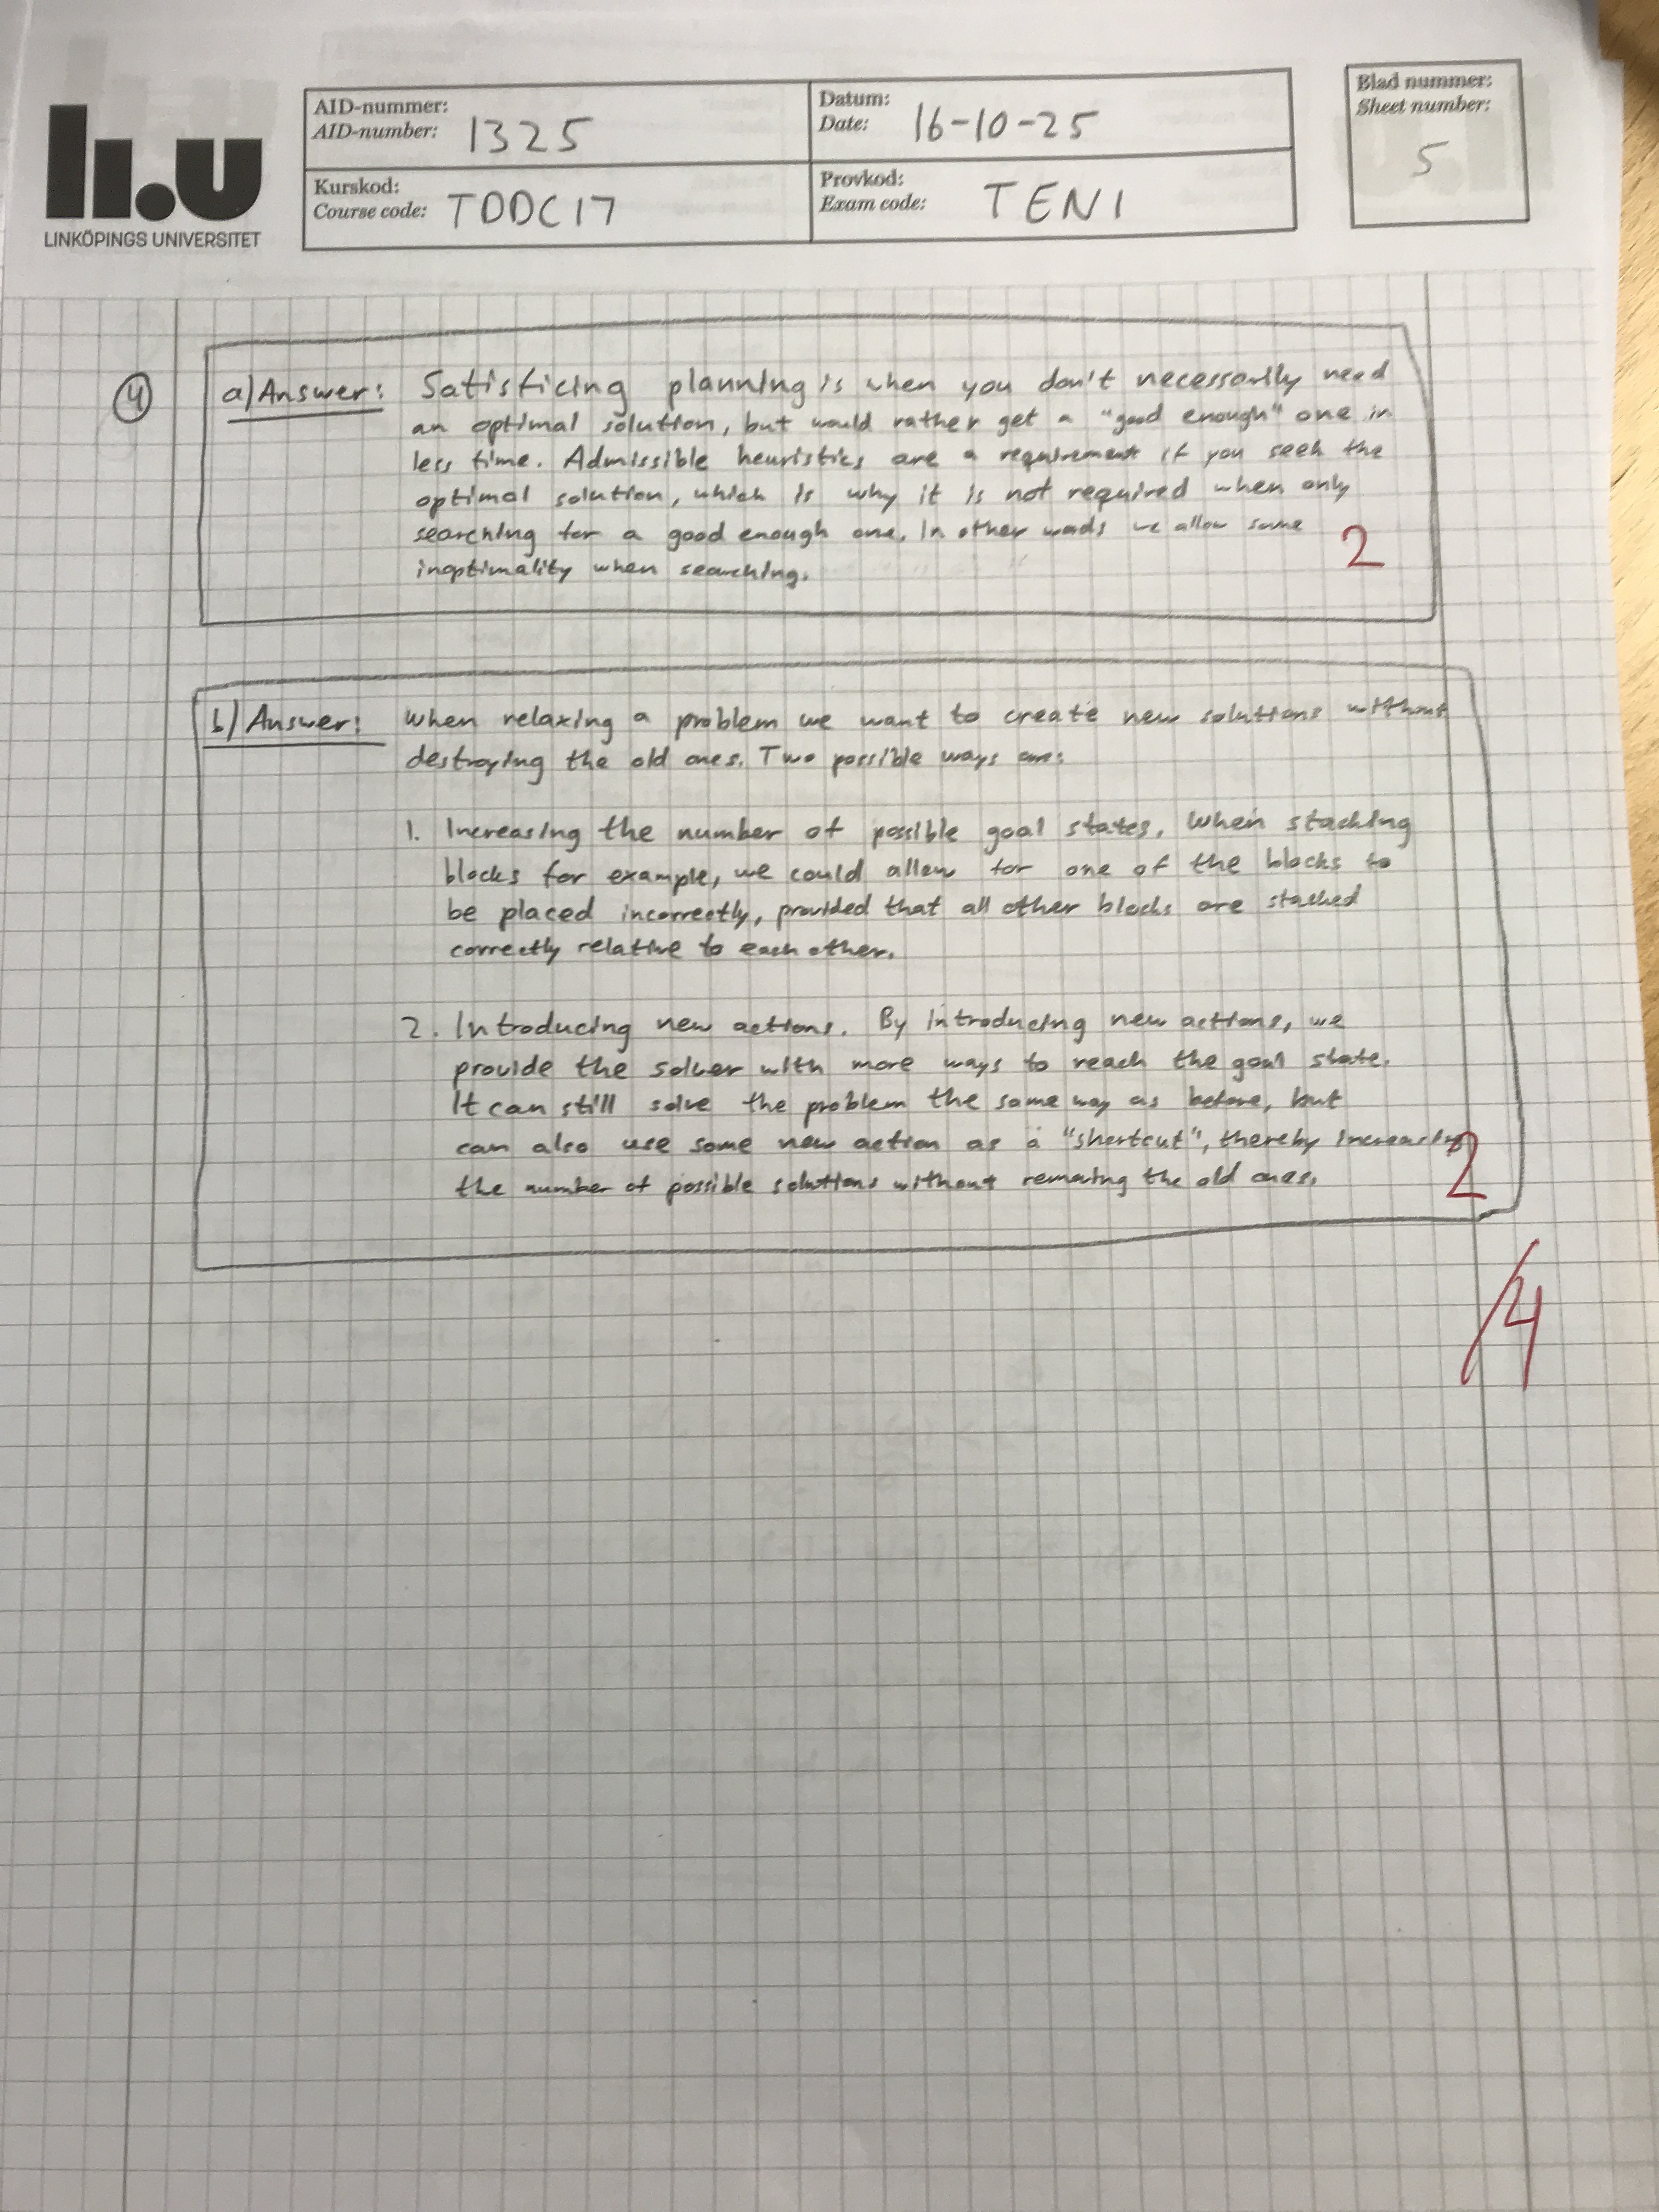 li.u
LINKÖPINGS UNIVERSITET
AID-nummer:
AID-number: 1325
Datum:
Date: 16-10-25
Kurskod:
Course code: TDDC17
Provkod:
Exam code: TEN1
Blad nummer:
Sheet number:
5
4
a) Answer: Satisficing planning is when you don't necessarily need
an optimal solution, but would rather get a "good enough" one in
less time. Admissible heuristics are a requirement if you seek the
optimal solution, which is why it is not required when only
searching for a good enough one. In other words we allow some
inoptimality when searching.
2
b) Answer: When relaxing a problem we want to create new solutions without
destroying the old ones. Two possible ways are:
1. Increasing the number of possible goal states. When stacking
blocks for example, we could allow for one of the blocks to
be placed incorrectly, provided that all other blocks are stacked
correctly relative to each other.
2. Introducing new actions. By introducing new actions, we
provide the solver with more ways to reach the goal state.
It can still solve the problem the same way as before, but
can also use some new action as a "shortcut", thereby increasing
the number of possible solutions without removing the old ones.
2
/4